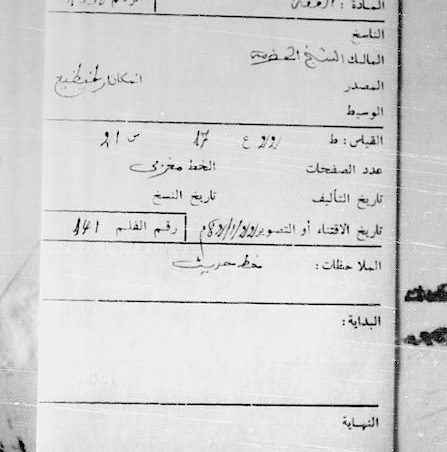 المادة : الفقه
الناسخ
المالك الشيخ الحضرمي
المصدر المكان
الوسيط
القياس: ط ع 17 س 21
عدد الصفحات الخط مغربي
تاريخ التأليف تاريخ النسخ
تاريخ الاقتناء أو التصوير رقم الفلم 141
الملاحظات: خط حديث
البداية:
النهاية